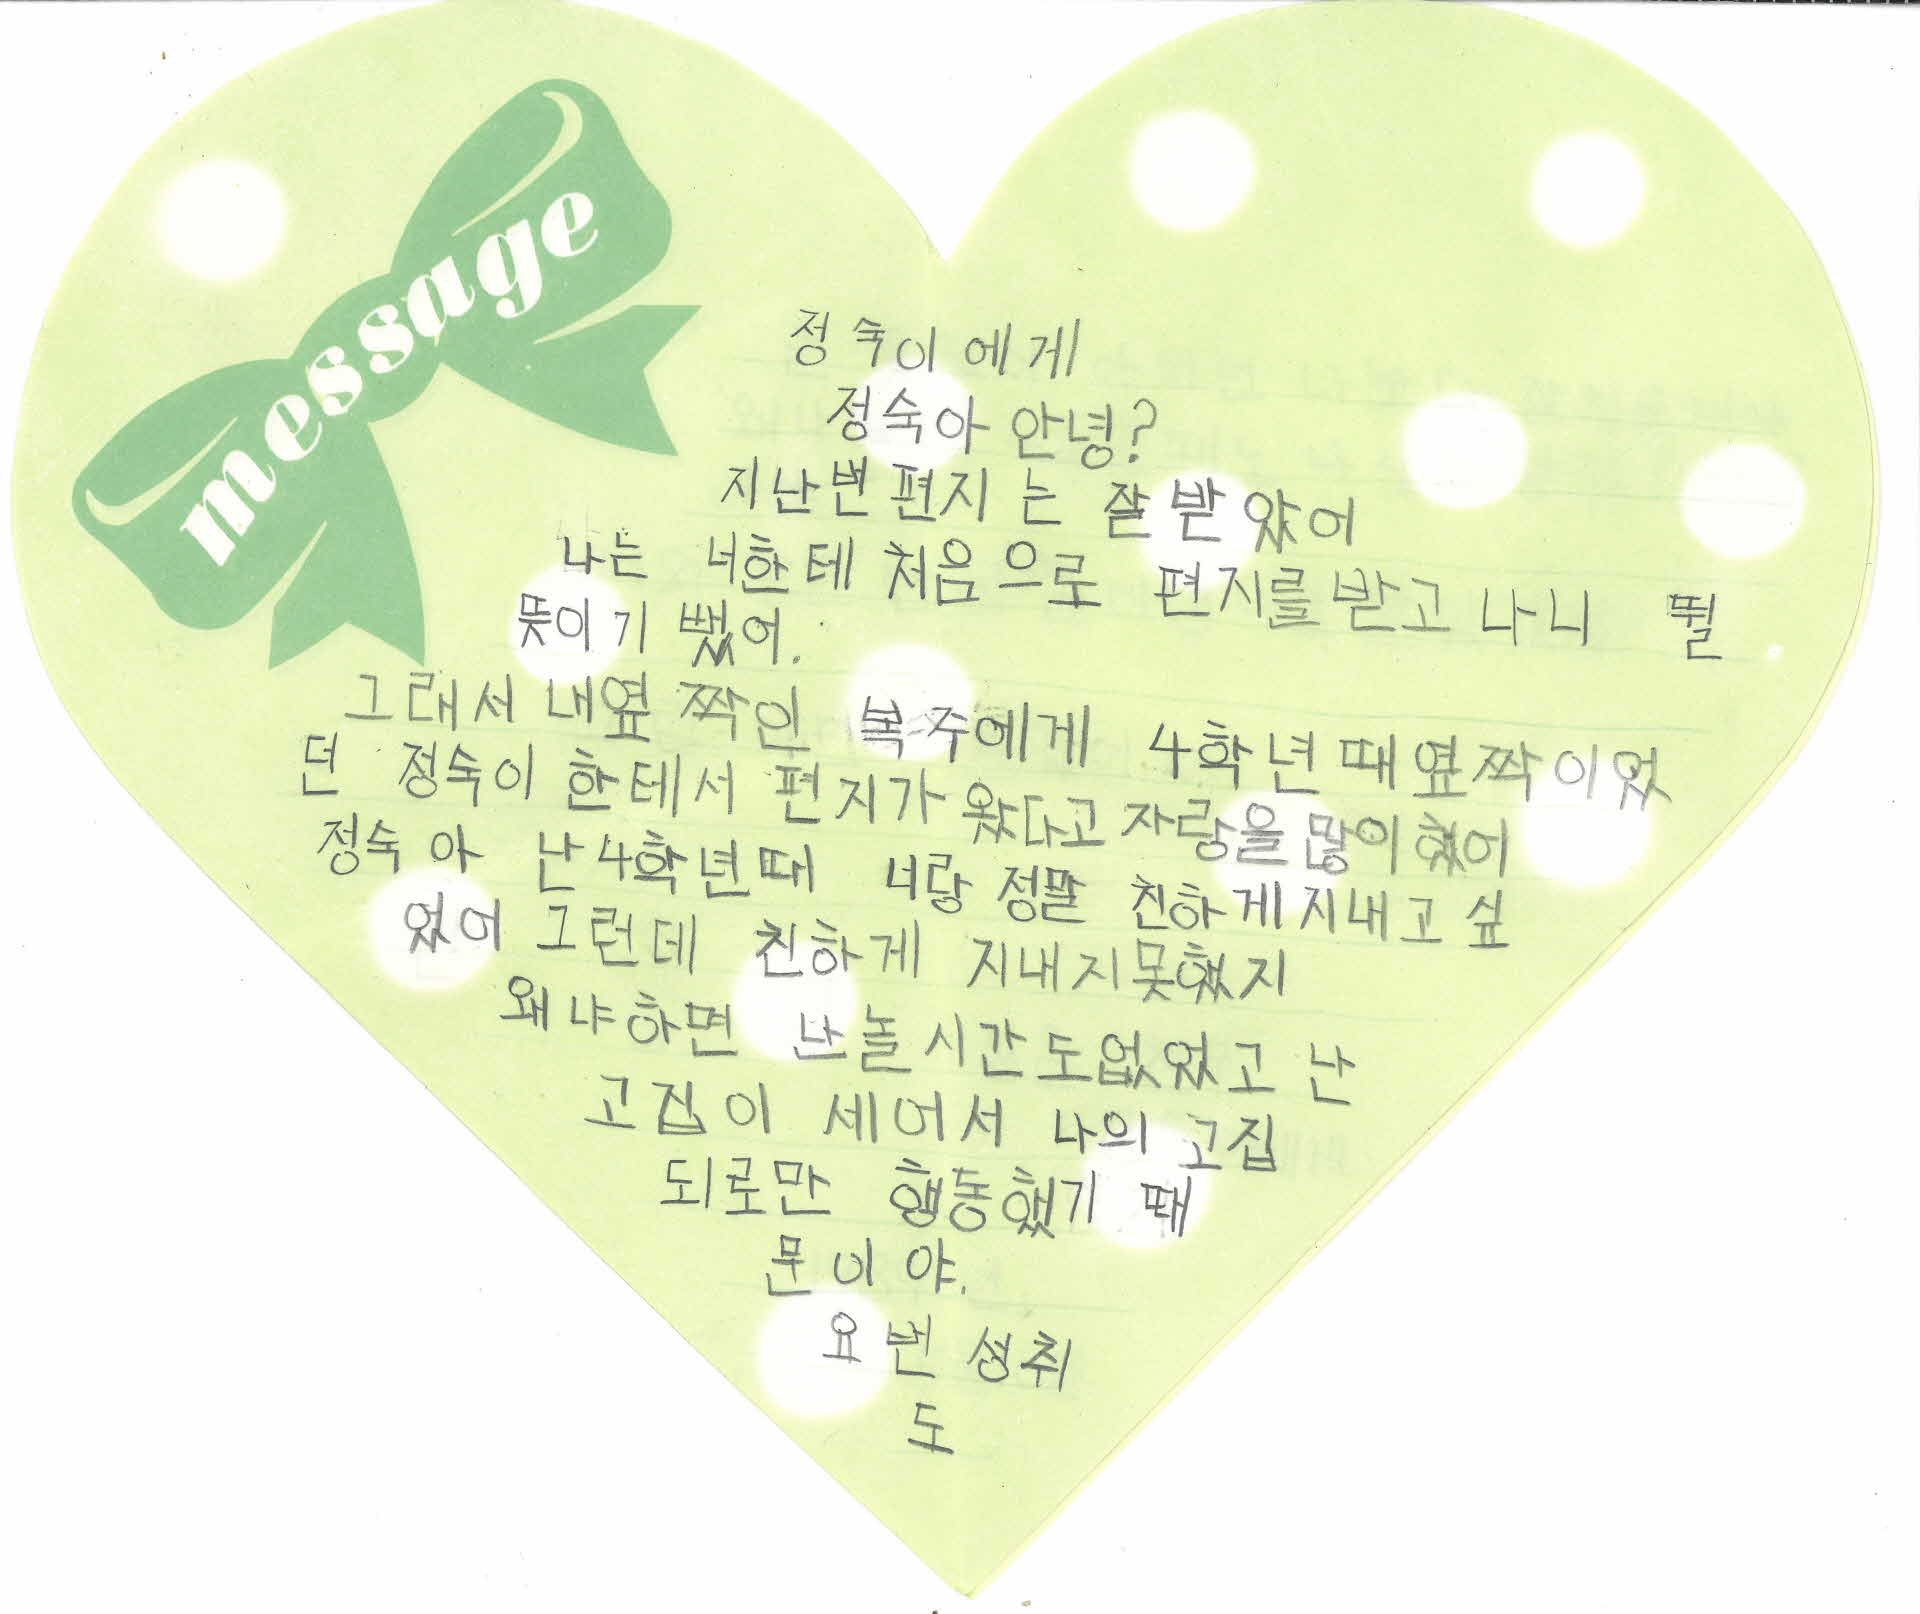 message
정숙이에게
정숙아 안녕?
지난번 편지는 잘 받았어
나는 너한테 처음으로 편지를 받고 나니 뛸
뜻이기 뻤어.
그래서 내옆 짝인 복주에게 4학년때 옆짝이었
던 정숙이 한테서 편지가 왔다고 자랑을 많이 했어
정숙아 난 4학년때 너랑 정말 친하게 지내고 싶
었어 그런데 친하게 지내지못했지
왜냐하면 난 놀시간도없었고 난
고집이 세어서 나의 고집
되로만 행동했기 때
문이야.
요번 성취
도